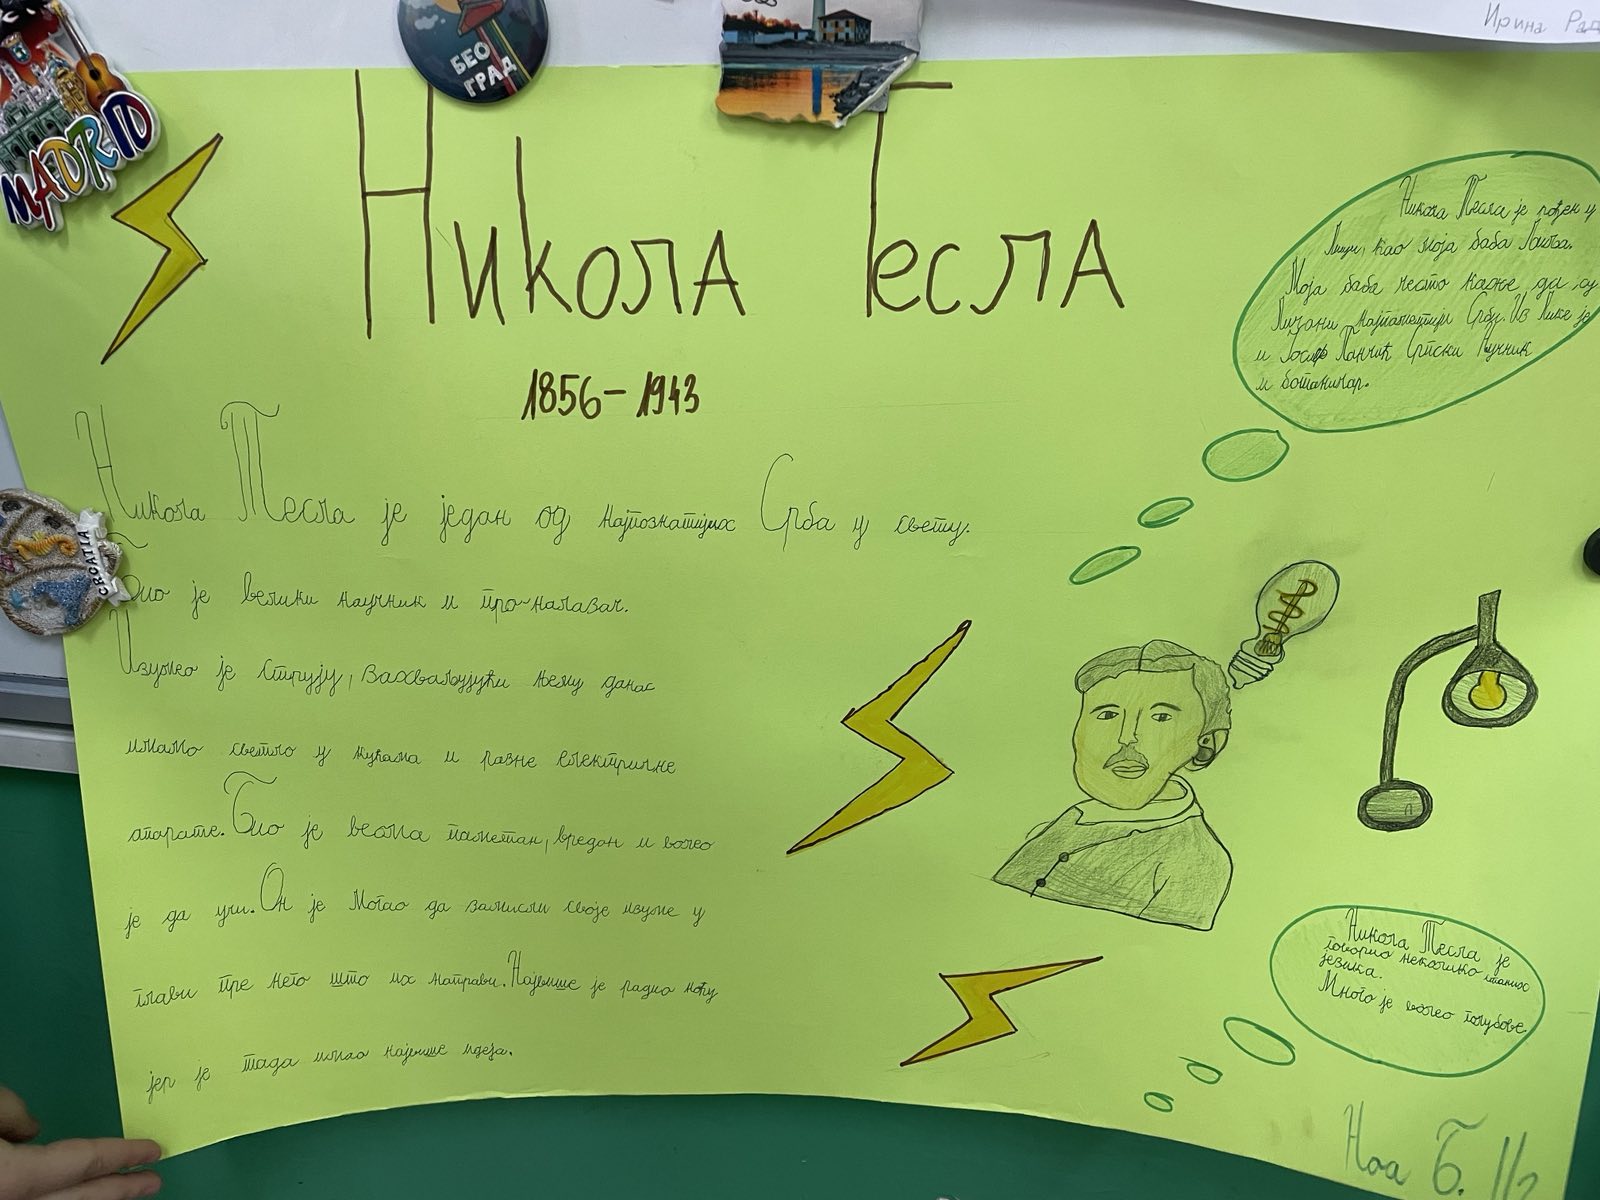 MADRID
БЕО
ГРАД
CROATIA
Ирина Рад
Никола Тесла
1856-1943
Никола Тесла је један од најпознатијих Срба у свету.
Био је велики научник и проналазач.
Изумео је струју, захваљујући њему данас
имамо светло у кућама и разне електричне
апарате. Био је веома паметан, вредан и волео
је да учи. Он је могао да замисли своје изуме у
глави пре него што их направи. Највише је радио ноћу
јер је тада имао највише идеја.
Никола Тесла је рођен у
Лици, као моја баба
Моја баба често каже да су
Личани најпаметији Срби. Из Лике је
и Јосиф Панчић Српски научник
и ботаничар.
Никола Тесла је
говорио неколико страних
језика.
Много је волео голубове.
Ноа Б. II2